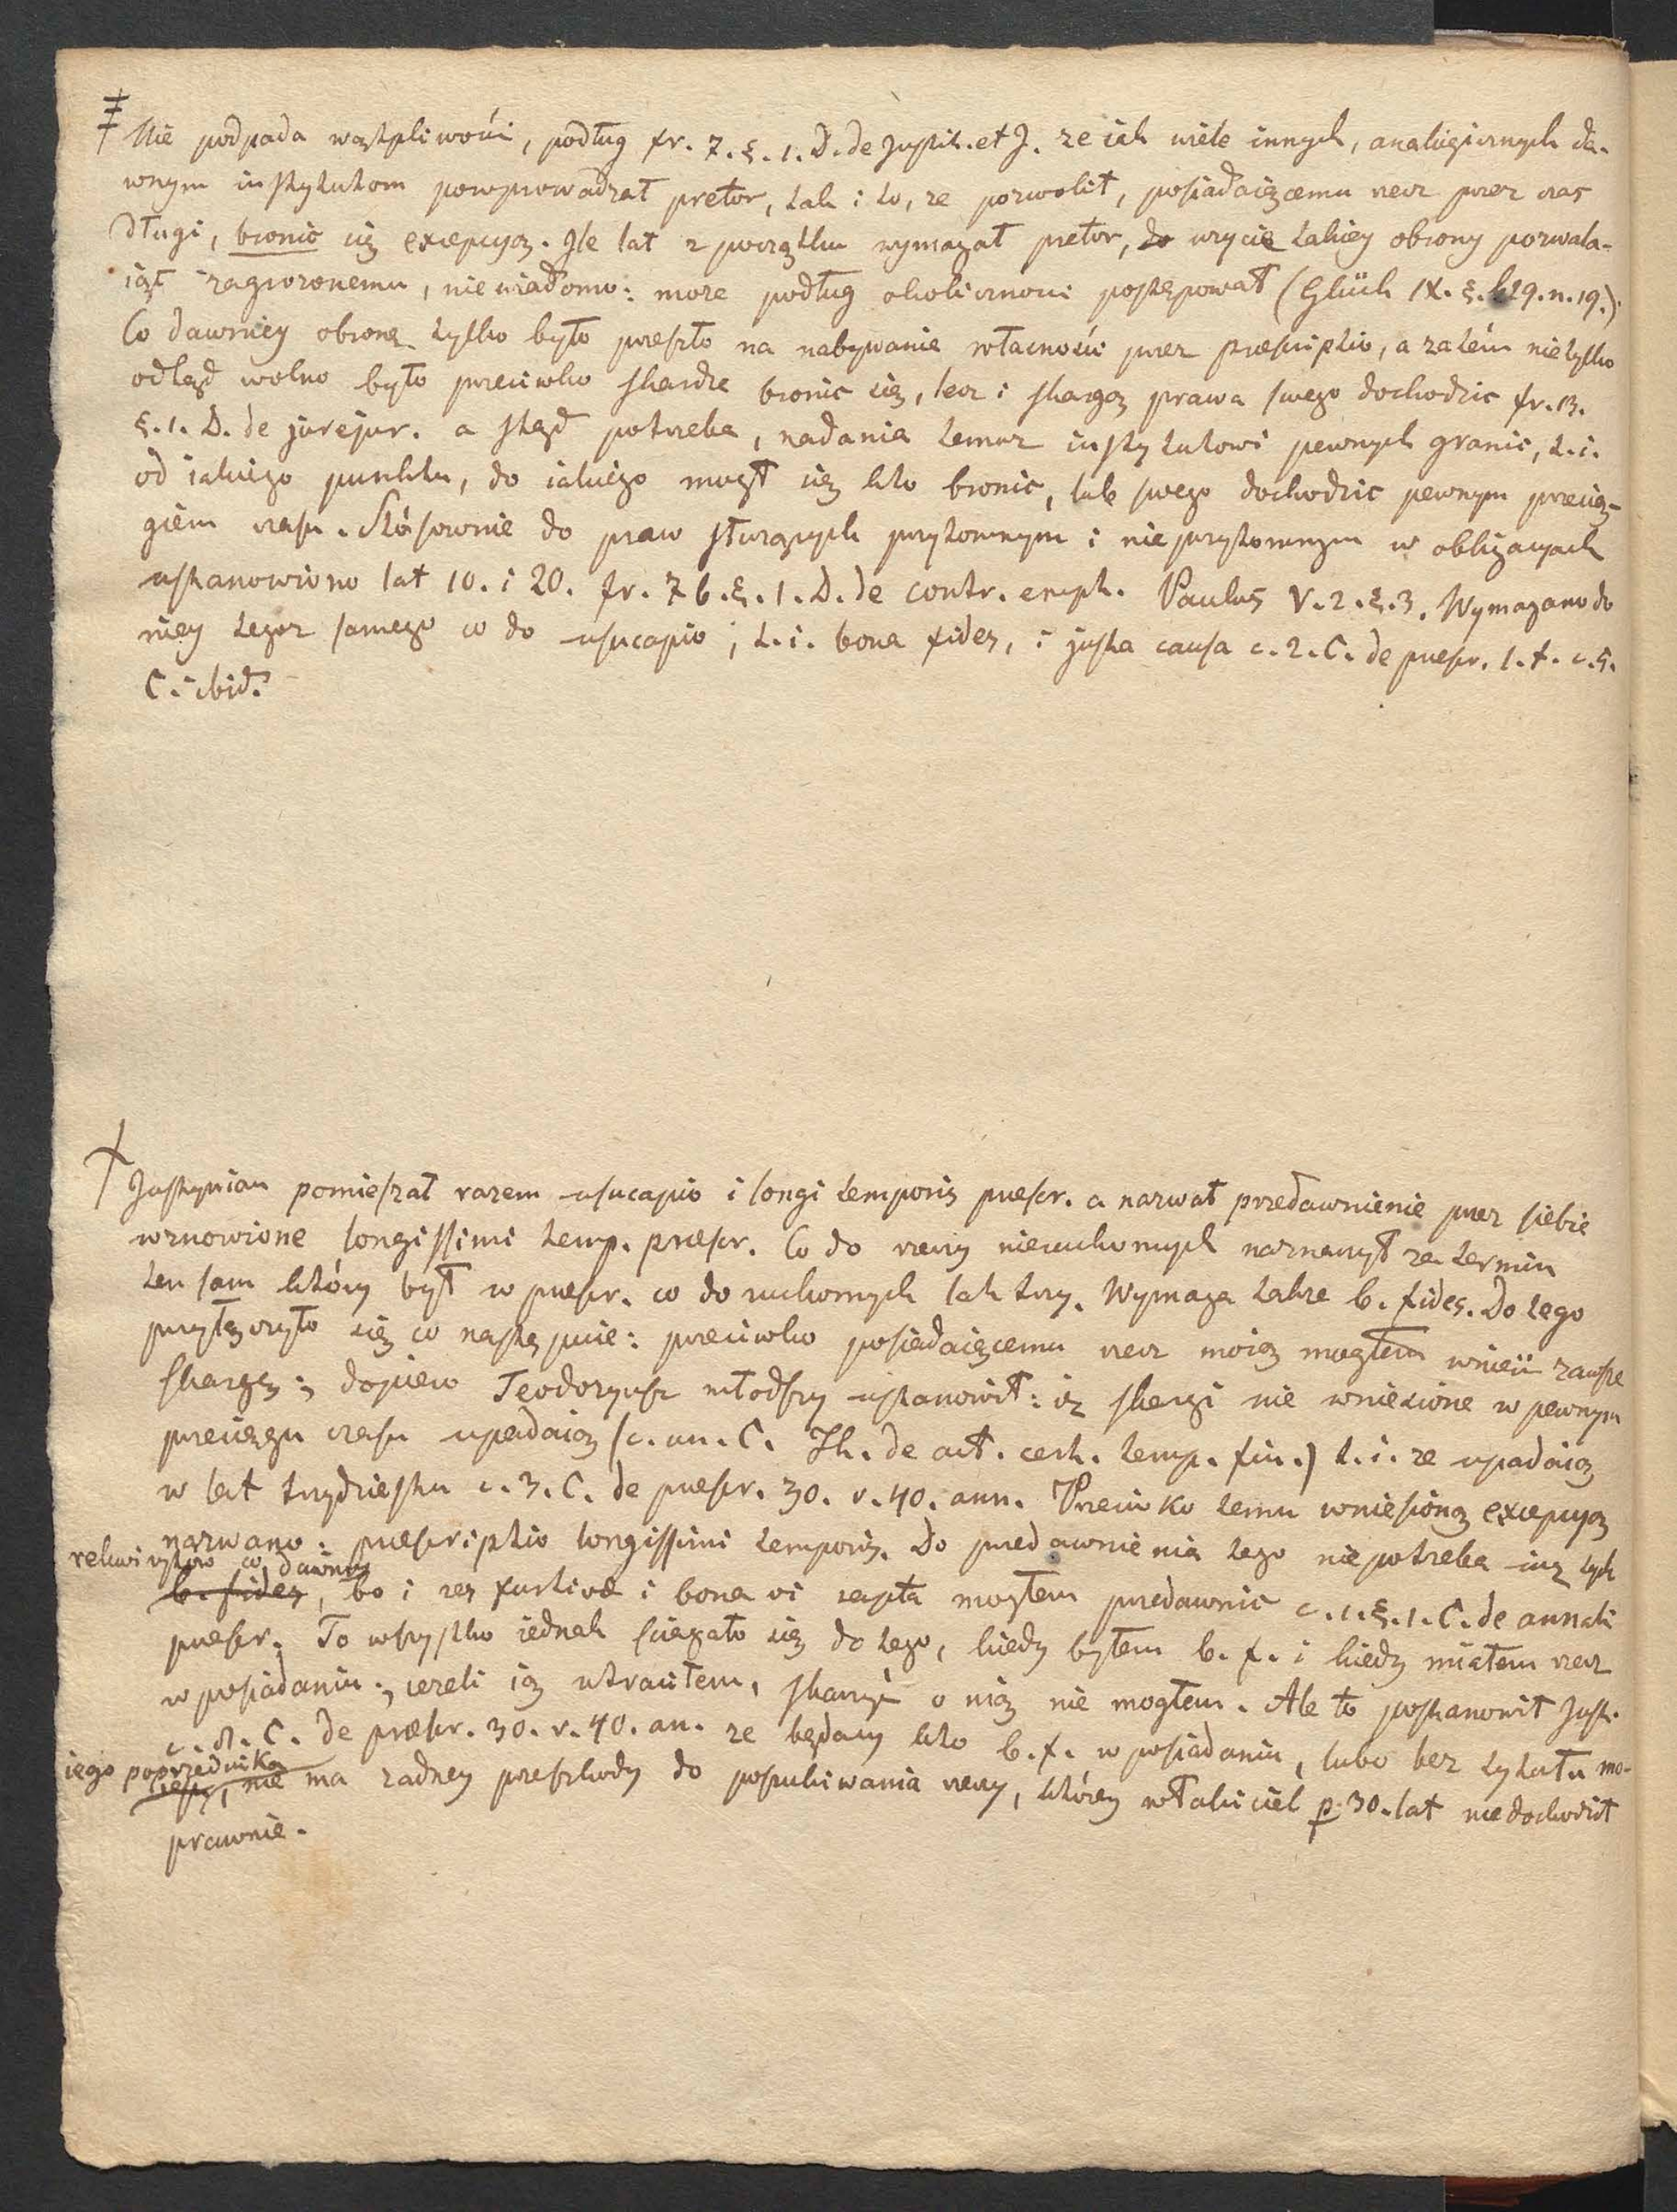 ‡ Nie podpada wątpliwości, podług fr. 7. §. 1. D. de Justit. et J. ze iak wiele innych, analogicznych da-
wnym instytutom powprowadzał pretor, tak i to, ze pozwolił, posiadaiącemu rzecz przez czas
długi, bronić się excepcyą. Ile lat z początku wymagał pretor, do uzycia takiey obrony pozwala-
iąc zagrozonemu, niewiadomo: moze podług okoliczności postępował (Glück IX. §. 629. n. 19.).
Co dawniey obroną tylko było przeszło na nabywanie własności przez praescriptio, a zatém nietylko
odtąd wolno było przeciwko skardze bronic się, lecz i skargą prawa swego dochodzic fr. 13.
§. 1. D. de jurejur. a stąd potrzeba, nadania temuz instytutowi pewnych granic, t. i.
od iakiego punktu, do iakiego mógł się kto bronic, lub swego dochodzic pewnym przecią-
giem czasu. Stósownie do praw słuzących przytomnym i nieprzytomnym w obligacyach
ustanowiono lat 10. i 20. fr. 76. §. 1. D. de contr. empt. Paulus V. 2. §. 3. Wymagano do
niey tegoz samego co do usucapio; t. i. bona fides, i justa causa c. 2. C. de praescr. l. t. c. 5.
C. ibid.
† Justynian pomieszał razem usucapio i longi temporis praescr. a nazwał przedawnienie przez siebie
wznowione longissimi temp. praescr. Co do rzeczy nieruchomych naznaczył ze termin
ten sam który był w praescr. co do ruchomych lat trzy. Wymaga takze b. fides. Do tego
przyłączyło się co następuie: przeciwko posiadaiącemu rzecz moią mogłem wnieść zawsze
skargę; dopiero Teodozyusz młodszy ustanowił: iz skargi nie wniesione w pewnym
przeciągu czasu upadaią (c. un. C. Th. de act. cert. temp. fin.) t. i. ze upadaią
w lat trzydziestu c. 3. C. de praescr. 30. v. 40. ann. Przeciwko temu wniesioną excepcyą
nazwano: praescriptio longissimi temporis. Do przedawnienia tego niepotrzeba iuz tych
rekwizytow co dawniey
b. fides, bo i res furtivae i bona vi rapta mogłem przedawnic c. 1. §. 1. C. de annali
praescr. To wszystko iednak sciągało się do tego, kiedy byłem b. f. i kiedy miałem rzecz
w posiadaniu; iezeli ią utraciłem, skarzyć o nią nie mogłem. Ale to postanowił Just.
c. 8. C. de praescr. 30. v. 40. an. ze będący kto b. f. w posiadaniu, lubo bez tytułu mo-
iego poprzednika
nie ma zadney przeszkody do poszukiwania rzeczy, którey właściciel p. 30. lat niedochodził
prawnie.